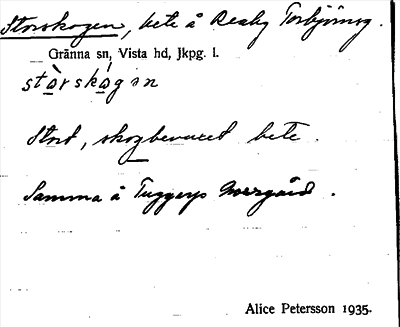 Storskogen, bete å Reaby Torbjörnsg.
Gränna sn, Vista hd, Jkpg. l.
stòrskógən
Stort, skogbevuxet bete.
Samma å Tuggarp Norrgård.
Alice Petersson 1935.